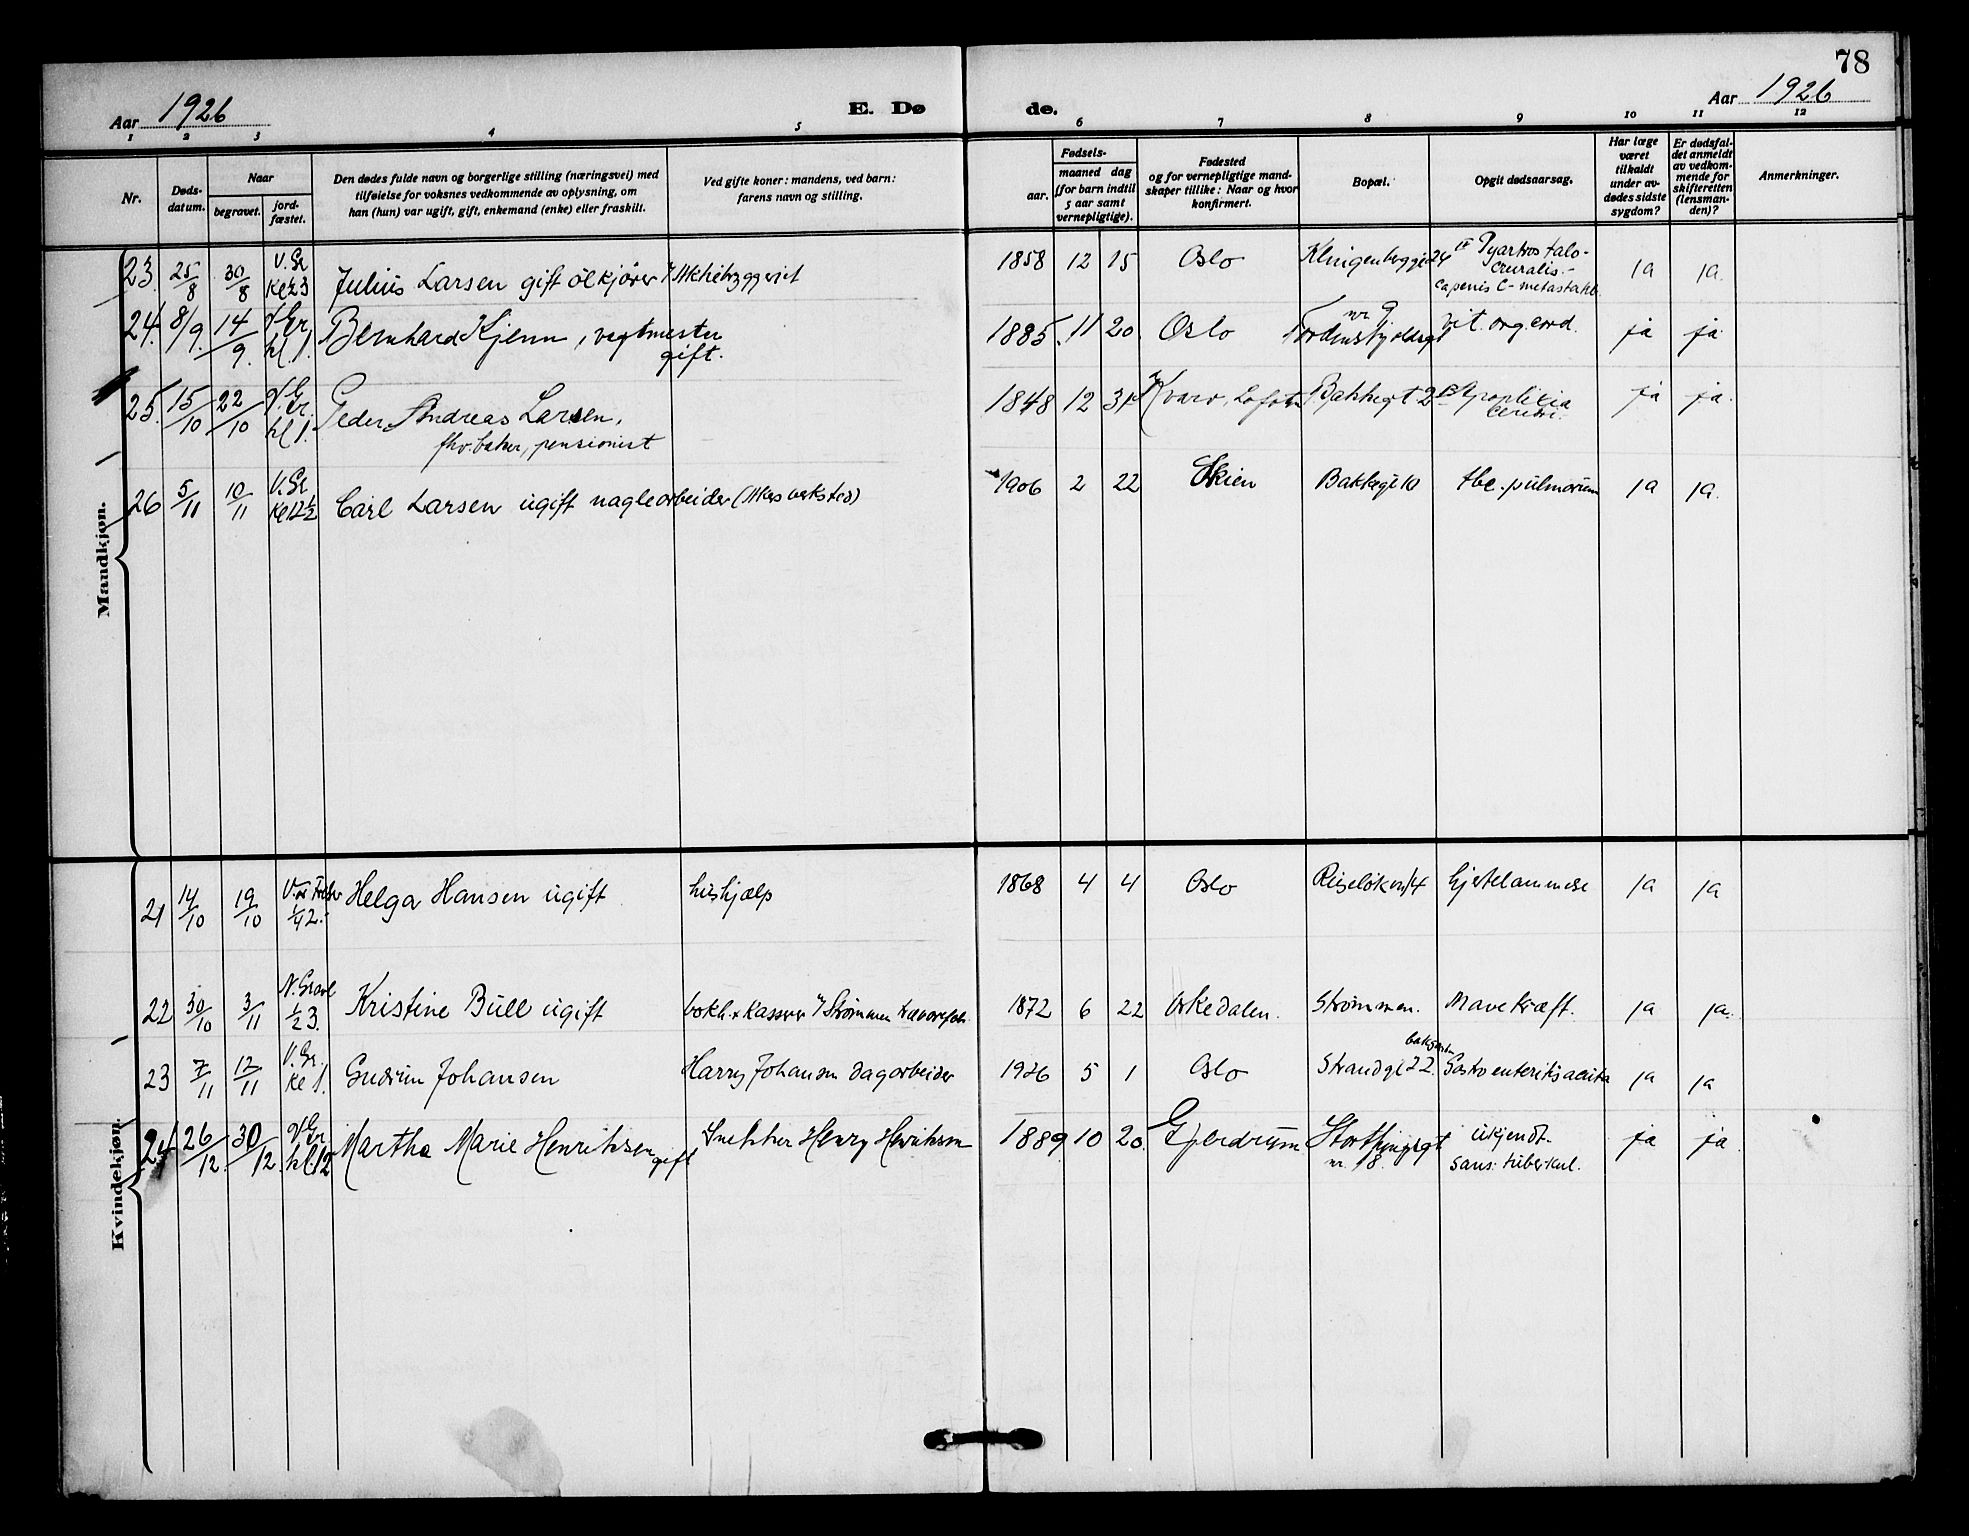 78
Aar 1926
E. Dø
de.
Aar 1926
1 2 3 4 5 6 7 8 9 10 11 12
Nr.
Døds-
datum.
Naar
begravet.
jord-
fæstet.
Den dødes fulde navn og borgerlige stilling (næringsvei) med
tilføielse for voksnes vedkommende av oplysning, om
han (hun) var ugift, gift, enkemand (enke) eller fraskilt.
Ved gifte koner: mandens, ved barn:
farens navn og stilling.
Fødsels-
aar.
maaned dag
(for barn indtil
5 aar samt
vernepligtige).
Fødested
og for vernepligtige mand-
skaper tillike: Naar og hvor
konfirmert.
Bopæl.
Opgit dødsaarsag.
Har læge
været
tilkaldt
under av-
dødes sidste
sygdom?
Er dødsfal-
det anmeldt
av vedkom-
mende for
skifteretten
(lensman-
den)?
Anmerkninger.
Mandkjøn.
23. 25/8 30/8 V. Gr Julius Larsen gift ølkjører 1858 12 15 Oslo 24 Pyartros talo-
cruralis.- ja ja.
metastat
24. 8/9. 14/9. V. Gr. kl 1. Bernhard Kjenn, vegtmester 1885. 11 20. Oslo nr 9. vit. org. cord. ja ja
gift.
25. 15/10 22/10 V. Gr. kl 1. Peder Andreas Larsen, 1848 12 31 Bakkegt 2 Apoplexia ja ja.
fhv. baker, pensionist
26 5/11 10/11 V. Gr Kl 12½ Carl Larsen ugift naglearbeider 1906 2 22 Skien Bakkegt 10 tbc. pulmonum ja ja.
Kvindekjøn.
21 14/10 19/10 Helga Hansen ugift hushjælp 1868 4 4 Oslo hjertelammelse ja ja
22 30/10 3/11 ½3. Kristine Bull ugift 1872 6 22 Orkedalen. Strømmen. Mavekræft. ja ja.
23 7/11 12/11 V. Gr. Kl 1. Gudrun Johansen Harry Johansen dagarbeider 1926 5 1 Oslo Strandgt 22. Gastroenteritis acuta ja ja
24 26/12. 30/12 V Gr kl. 12 Martha Marie Henriksen gift Snekker Henry Henriksen 1889 10 20. Gjerdrum Stortingsgt ukjendt. ja ja.
nr. 18. sans: tuberkul.